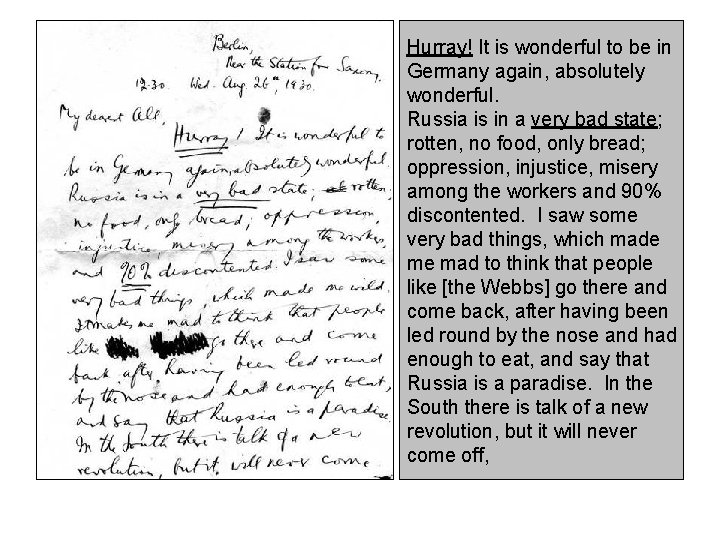 Berlin,
Near the Station for Saxony,
12.30. Wed. Aug. 26th, 1930.
My dearest All,
Hurray! It is wonderful to
be in Germany again, absolutely wonderful.
Russia is in a very bad state; rotten,
no food, only bread; oppression,
injustice, misery among the workers
and 90% discontented. I saw some
very bad things, which made me wild.
It makes me mad to think that people
like go there and come
back, after having been led round
by the nose and had enough to eat,
and say that Russia is a paradise.
In the South there is talk of a new
revolution, but it will never come
Hurray! It is wonderful to be in
Germany again, absolutely
wonderful.
Russia is in a very bad state;
rotten, no food, only bread;
oppression, injustice, misery
among the workers and 90%
discontented. I saw some
very bad things, which made
me mad to think that people
like [the Webbs] go there and
come back, after having been
led round by the nose and had
enough to eat, and say that
Russia is a paradise. In the
South there is talk of a new
revolution, but it will never
come off,